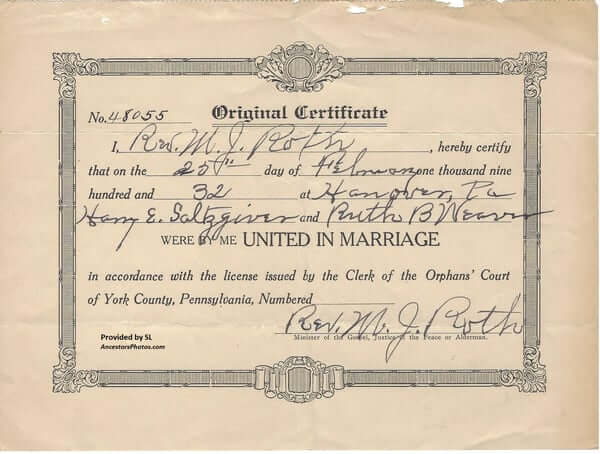 No. 48055 Original Certificate
I, Rev. M. J. Roth, hereby certify
that on the 25th day of February one thousand nine
hundred and 32 at Hanover, Pa
Harry E. Saltzgiver and Ruth B Weaver
WERE BY ME UNITED IN MARRIAGE
in accordance with the license issued by the Clerk of the Orphans' Court
of York County, Pennsylvania, Numbered
Rev. M. J. Roth
Minister of the Gospel, Justice of the Peace or Alderman.
Provided by SL
AncestorsPhotos.com